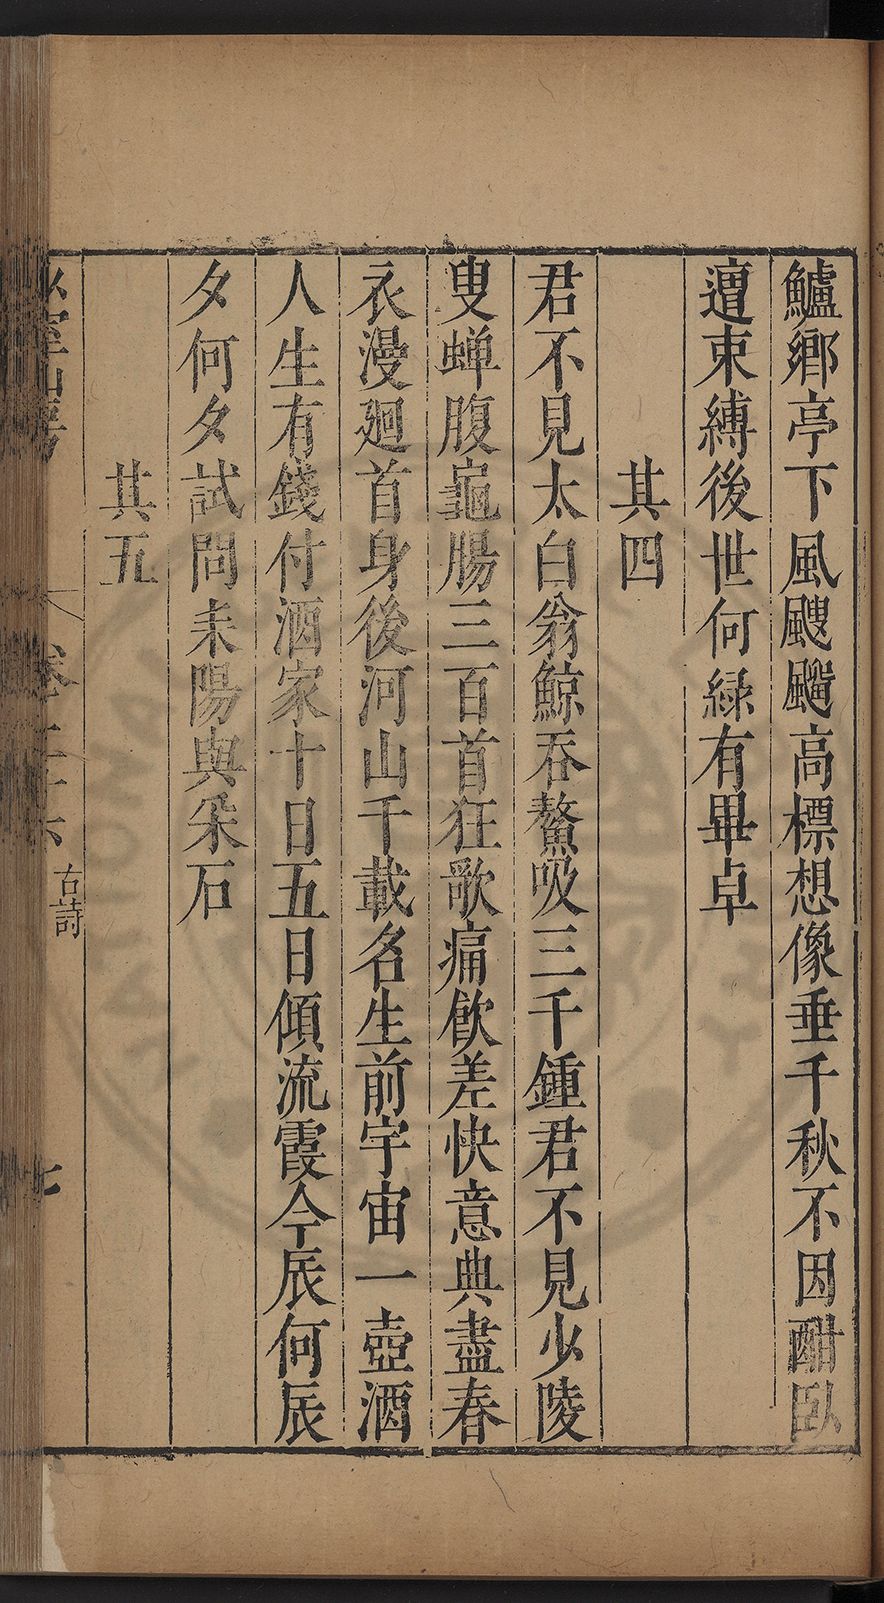 鱸鄉亭下風颼飀高標想像垂千秋不因酣臥
遭束縛後世何緣有畢卓
其四
君不見太白翁鯨吞鰲吸三千鍾君不見少陵
叟蟬腹龜腸三百首狂歌痛飲差快意典盡春
衣漫廻首身後河山千載名生前宇宙一壺酒
人生有錢付酒家十日五日傾流霞今辰何辰
夕何夕試問耒陽與采石
其五
古詩